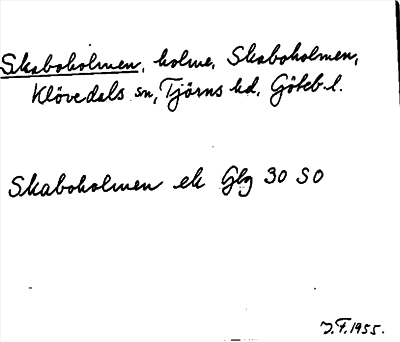 Skaboholmen, holme, Skaboholmen,
Klövedals sn, Tjörns hd, Göteb. l.
Skaboholmen ek Gbg 30 SO
J.F. 1955.